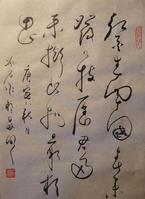 紅豆生南國春來
發幾枝願君多
采擷此物最相
思
庚寅秋月